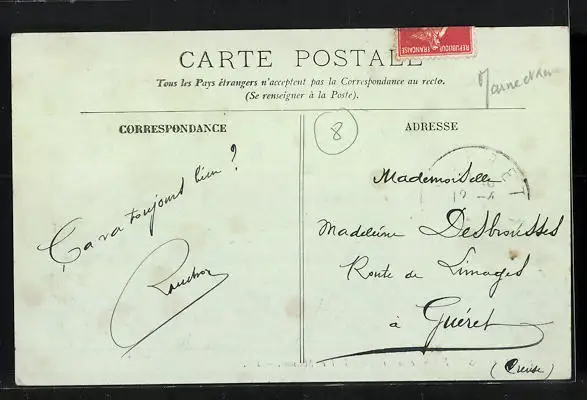 CARTE POSTALE
Tous les Pays étrangers n'acceptent pas la Correspondance au recto.
(Se renseigner à la Poste).
REPUBLIQUE FRANÇAISE
CORRESPONDANCE
ADRESSE
8
Ça va toujours bien ?
Mademoiselle
Madeleine Desbrousses
Route de Limoges
à Guéret
(Creuse)